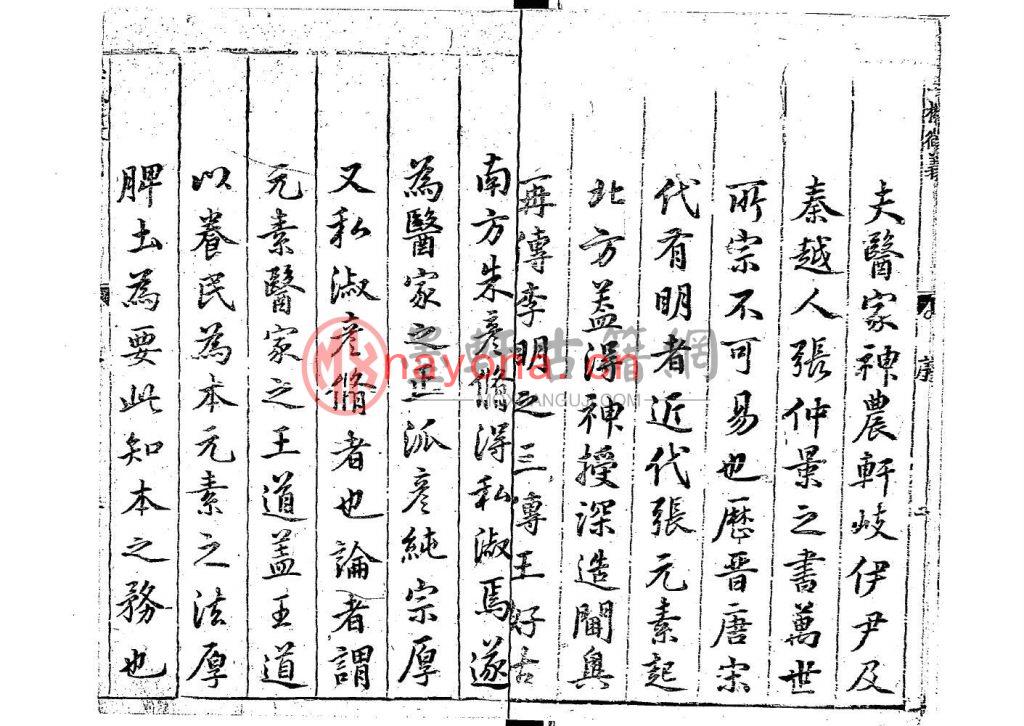 夫醫家神農軒岐伊尹及
秦越人張仲景之書萬世
所宗不可易也歷晉唐宋
代有明者近代張元素起
北方蓋得神授深造閫奧
再傳李明之三傳王好古
南方朱彥脩得私淑焉遂
為醫家之正派彥純宗厚
又私淑彥脩者也論者謂
元素醫家之王道蓋王道
以養民為本元素之法厚
脾土為要此知本之務也
序
nayona.cn